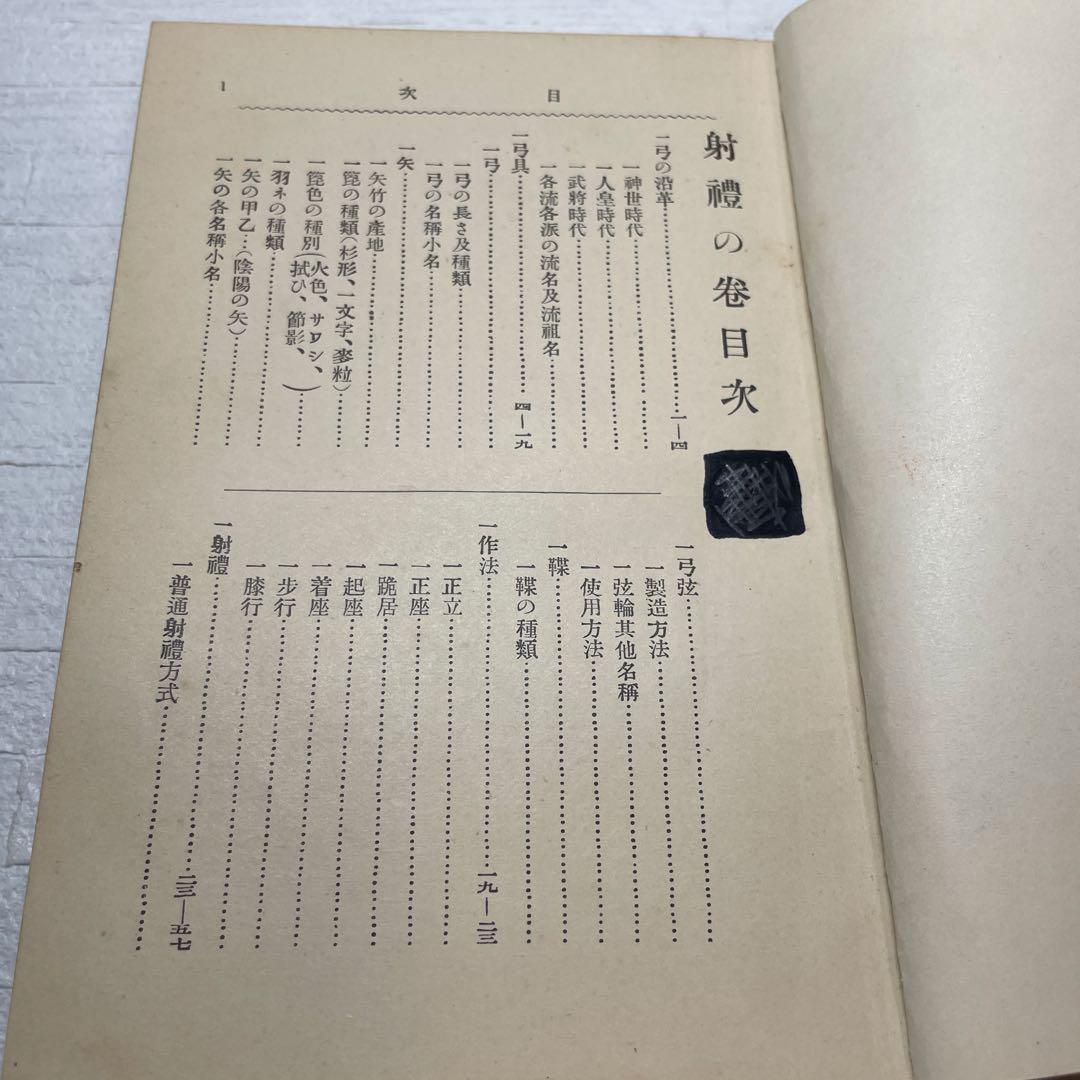 目次 1
射禮の卷目次
一弓の沿革…………一―四
一神世時代…………
一人皇時代…………
一武將時代…………
一各流各派の流名及流祖名…………
一弓具…………四―一九
一弓…………
一弓の長さ及種類…………
一弓の名稱小名…………
一矢…………
一矢竹の產地…………
一箆の種類(杉形、一文字、麥粒)…………
一箆色の種別(火色、サワシ、拭ひ、節影、)…………
一羽ネの種類…………
一矢の甲乙…(陰陽の矢)…………
一矢の各名稱小名…………
一弓弦…………
一製造方法…………
一弦輪其他名稱…………
一使用方法…………
一鞢…………
一鞢の種類…………
一作法…………一九―二三
一正立…………
一正座…………
一跪居…………
一起座…………
一着座…………
一步行…………
一膝行…………
一射禮…………二三―五七
一普通射禮方式…………